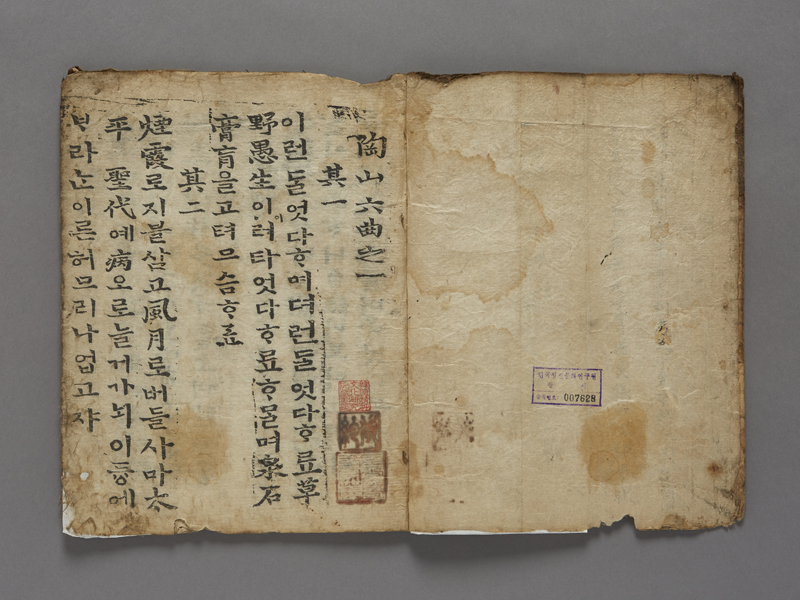 陶山六曲之一
其一
이런ᄃᆞᆯ엇다ᄒᆞ며뎌런ᄃᆞᆯ엇다ᄒᆞ료草
野愚生이러타엇다ᄒᆞ료ᄒᆞᄆᆞᆯ며泉石
膏肓을고텨므슴ᄒᆞ료
其二
煙霞로지블삼고風月로버들사마太
平 聖代예病오로늘거가뇌이듕에
ᄇᆞ라ᄂᆞᆫ이른허므리나업고쟈
007628